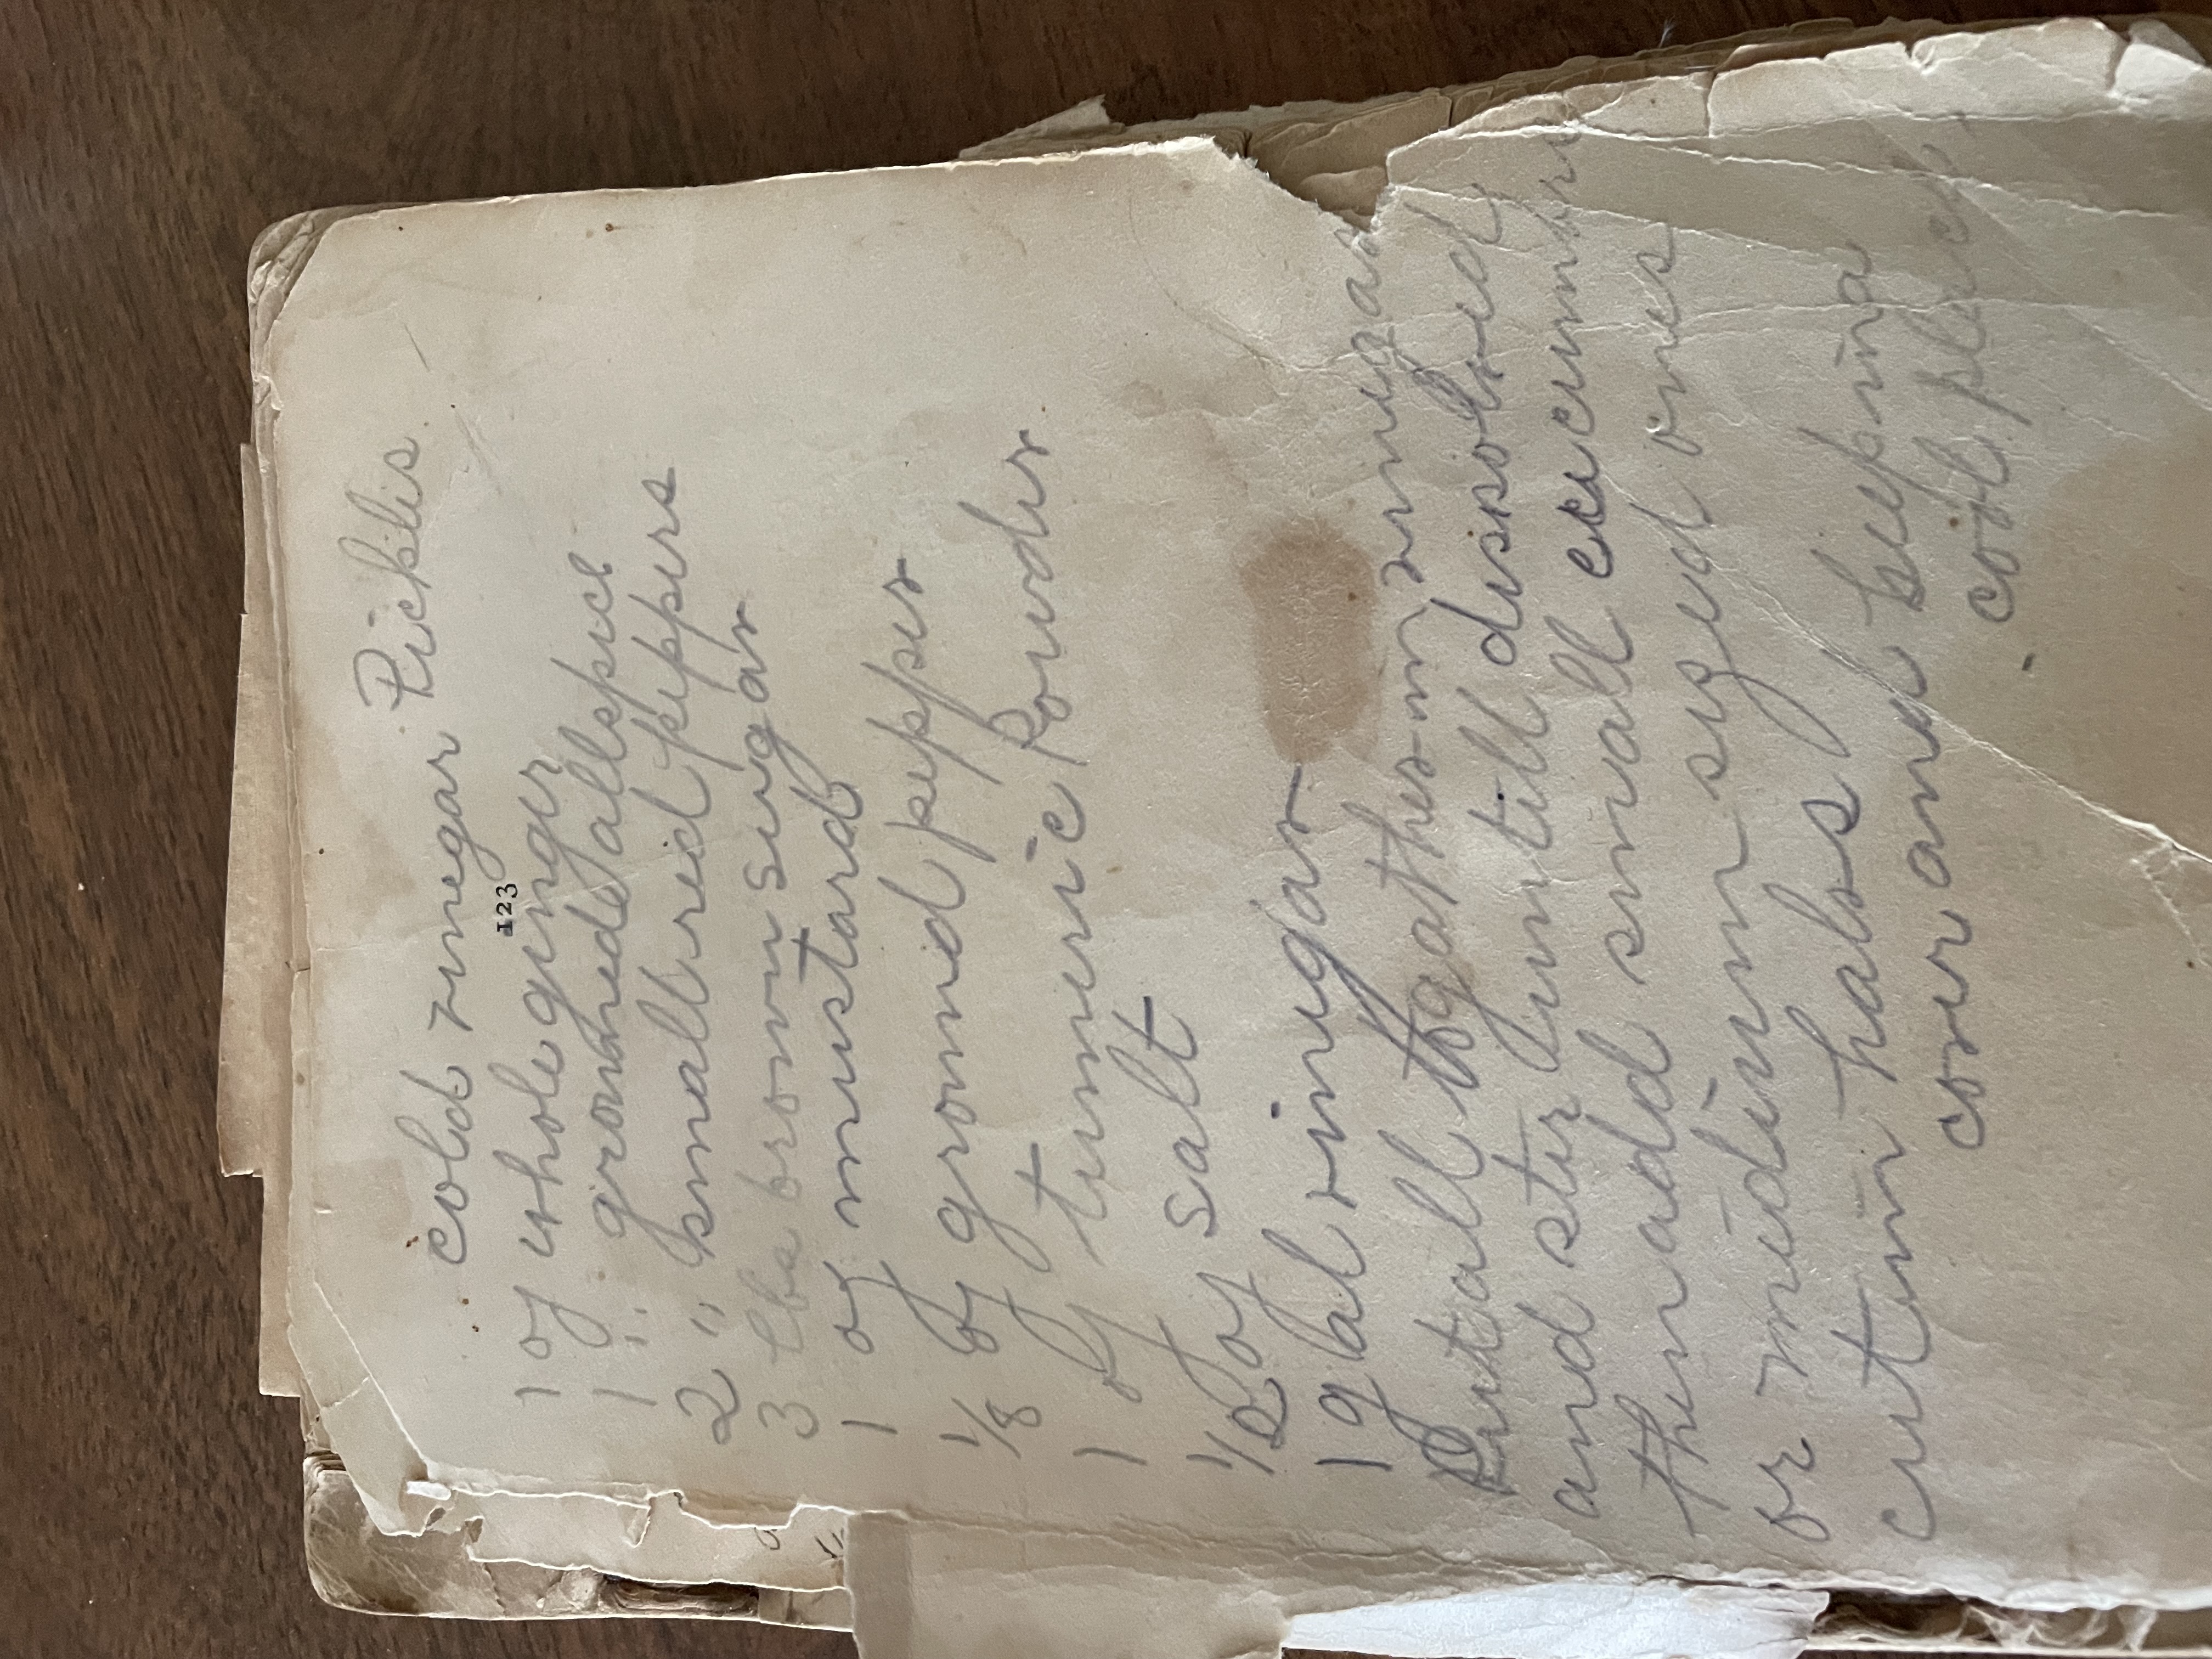 cold vinegar Pickles
123
1 of whole ginger
1 " grounede allspice
2 " small red peppers
3 lbs brown sugar
1 of mustard
1/8 of ground pepper
1 of tumeric Powder
1/2 of salt
1 gal vinegar
Put all togather in vinegar
and ster untill dissolved
then add small
or medium sized ones
cut in halvs
cover and keep in a
cool place